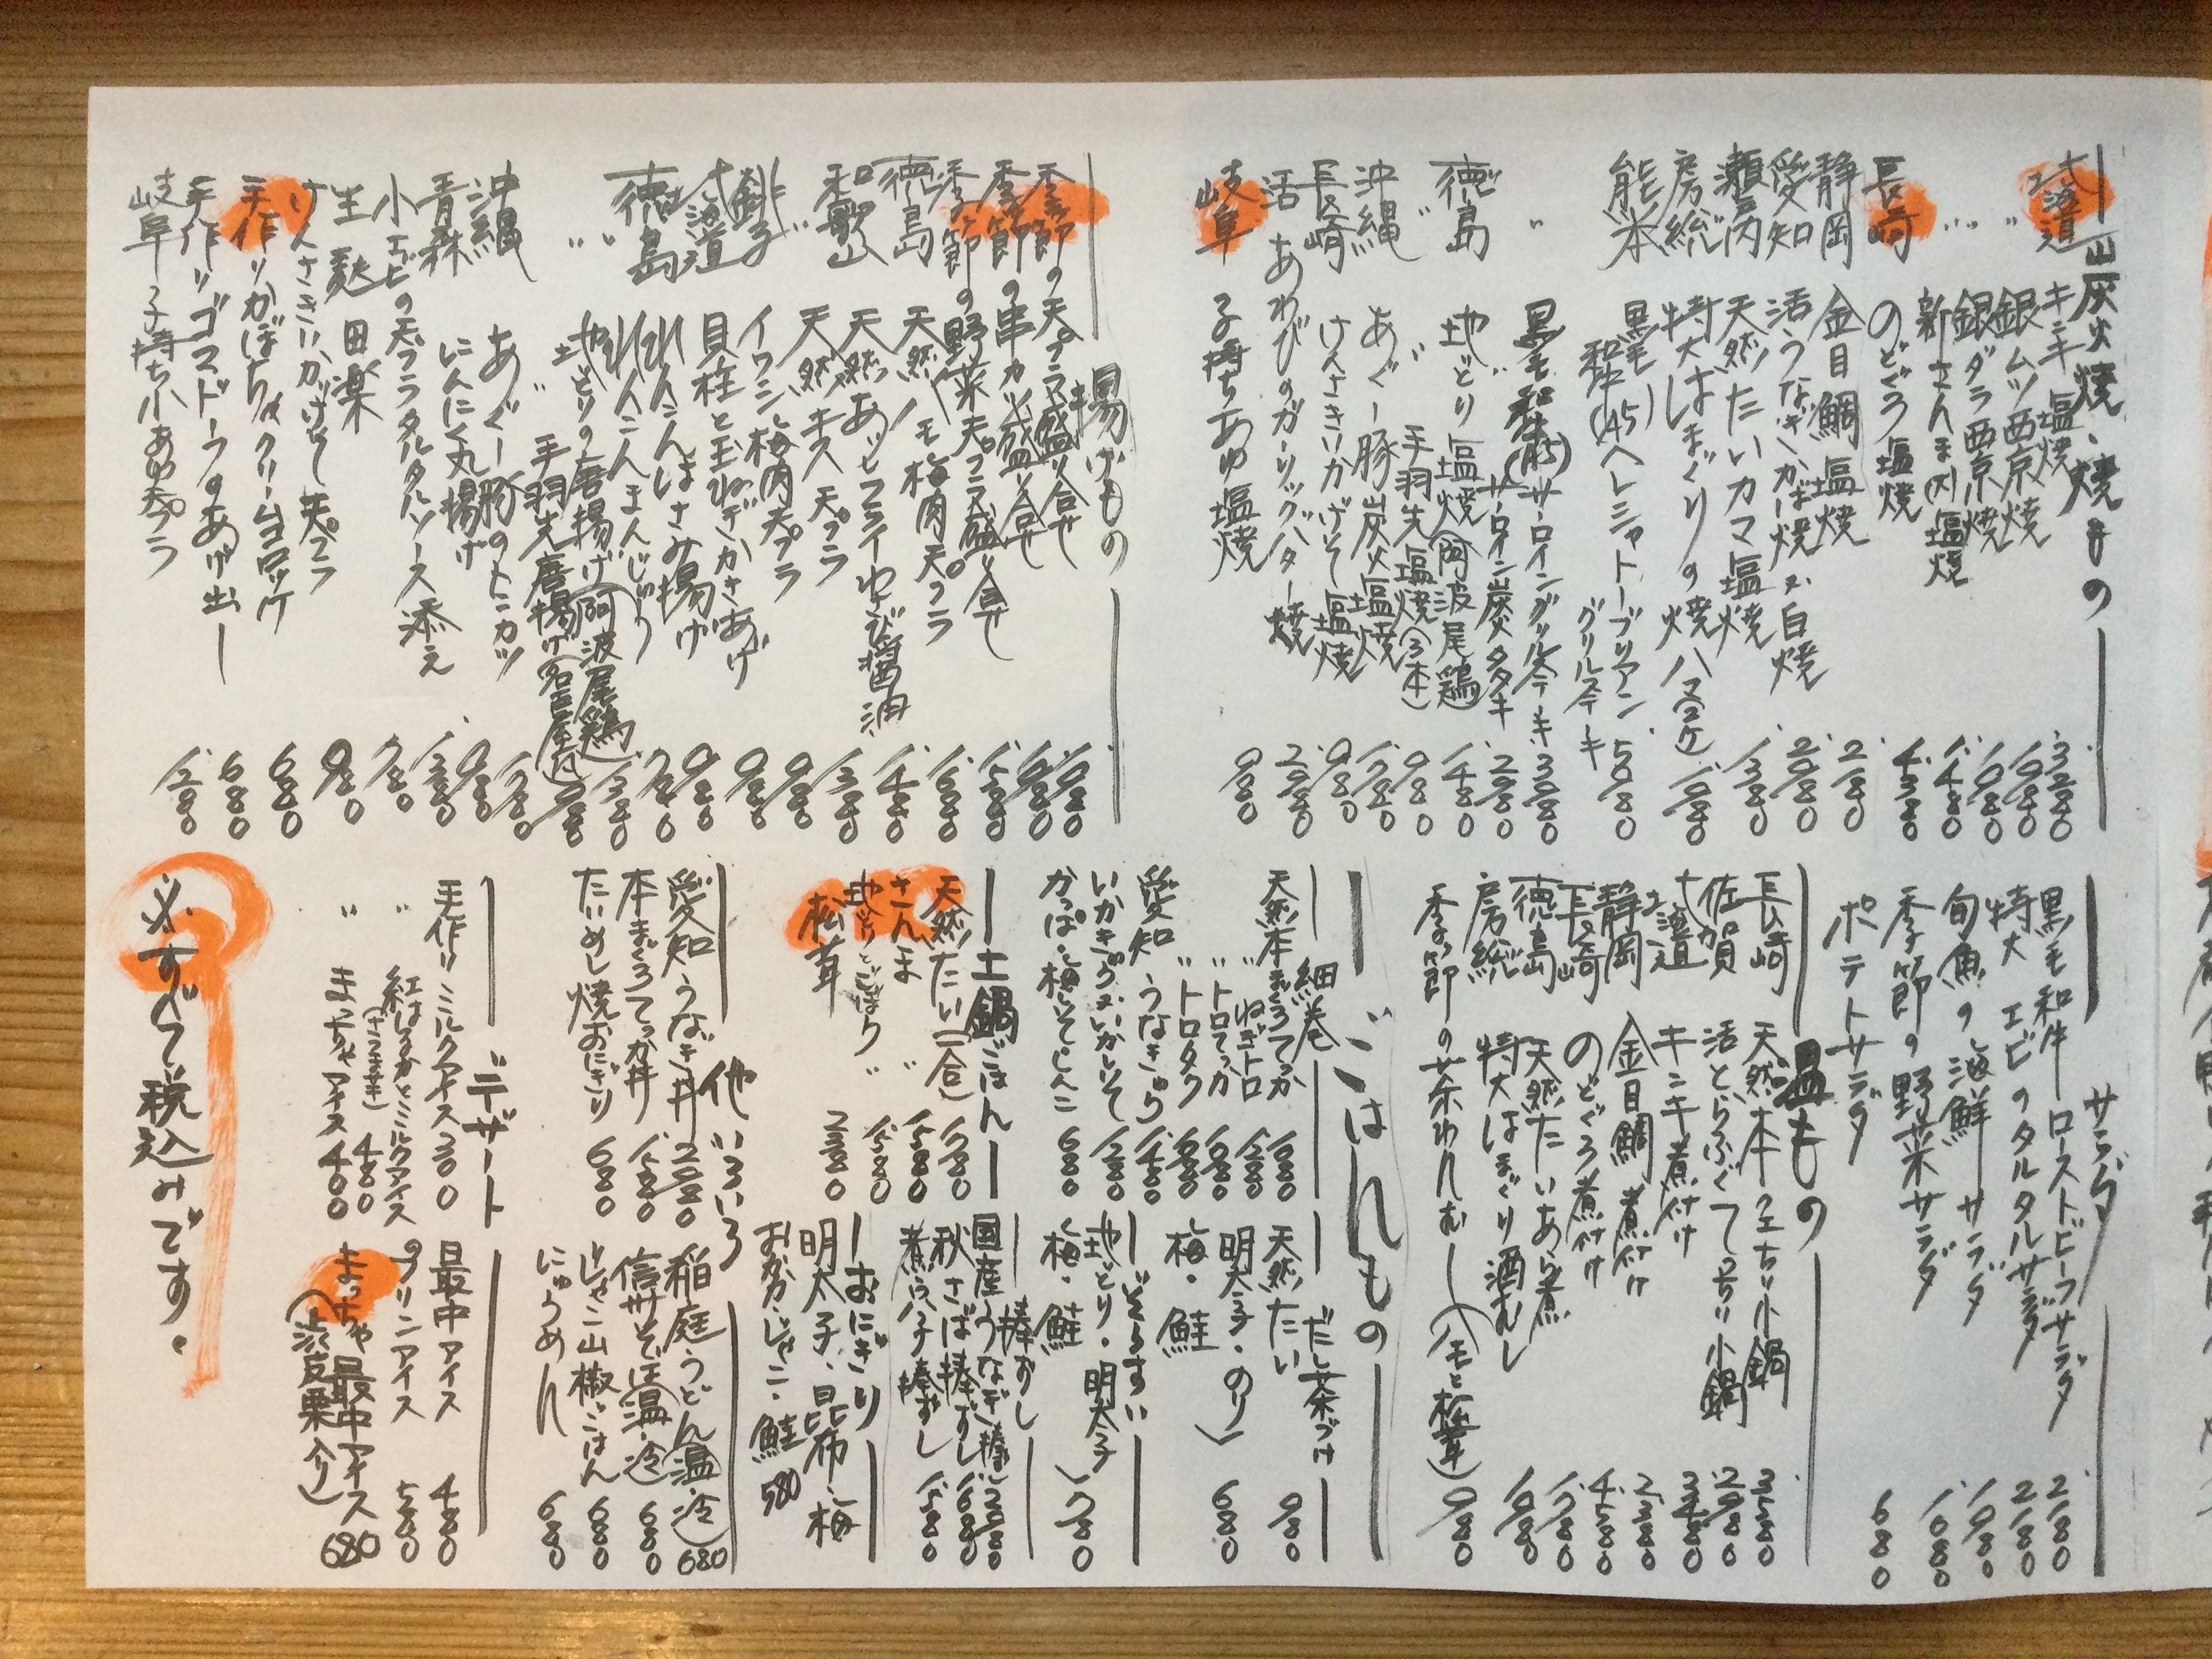 炭火焼・焼きもの
北海道 キンキ 塩焼 3,280
〃 銀ムツ西京焼 1,980
〃 銀ダラ西京焼 1,980
〃 新さんま(大)塩焼 1,480
長崎 のどぐろ塩焼 4,380
静岡 金目鯛塩焼 2,180
愛知 活うなぎ・かば焼 or 白焼 2,980
瀬戸内 天然たいカマ塩焼 1,380
房総 特大はまぐりの焼ハマ(2ケ) 1,980
熊本 黒毛和牛(A5)ヘレシャトーブリアングリルステーキ 5,080
〃 黒毛和牛(A5)サーロイングリルステーキ 3,080
〃 サーロイン炭火タタキ 2,780
徳島 地どり塩焼(阿波尾鶏) 1,480
〃 〃 手羽先塩焼(3本) 980
沖縄 あぐー豚炭火塩焼 1,780
長崎 けんさきいかげそ塩焼 980
活あわびのガーリックバター焼 2,980
岐阜 子持ちあゆ塩焼 980
揚げもの
季節の天プラ盛り合せ 1,980
季節の串カツ盛り合せ 1,980
季節の野菜天プラ盛り合せ 1,580
徳島 天然ハモ梅肉天プラ 1,680
和歌山 天然あじフライわさび醤油 1,480
〃 天然キス天プラ 1,380
銚子 イワシ梅肉天プラ 980
北海道 貝柱と玉ねぎかきあげ 980
徳島 れんこんはさみ揚げ 980
〃 れんこんまんじゅう 780
〃 地どりの唐揚げ(阿波尾鶏) 1,380
〃 手羽先唐揚げ(名古屋風) 980
沖縄 あぐー豚のトンカツ 1,780
青森 にんにく丸揚げ 980
小エビの天プラタルタルソース添え 1,380
生麩田楽 780
けんさきいかげそ天プラ 980
手作りかぼちゃクリームコロッケ 680
手作りゴマドーフのあげ出し 680
岐阜 子持ち小あゆ天プラ 1,280
サラダ
黒毛和牛ローストビーフサラダ 2,180
特大エビのタルタルサラダ 2,180
旬魚の海鮮サラダ 1,980
季節の野菜サラダ 1,080
ポテトサラダ 680
温もの
長崎 天然本クエちり小鍋 3,580
佐賀 活とらふぐてっちり小鍋 2,980
北海道 キンキ煮付け 3,480
静岡 金目鯛煮付け 2,380
長崎 のどぐろ煮付け 4,580
徳島 天然たいあら煮 1,780
房総 特大はまぐり酒むし 1,980
季節の茶わんむし(ハモと松茸) 980
ごはんもの
細巻
天然本まぐろてっか 1,680
〃 ねぎトロ 1,280
〃 トロてっか 1,680
〃 トロタク 1,680
愛知 うなきゅう 1,480
いかきゅう or いかしそ 1,280
かっぱ・梅しそしんこ 680
だし茶づけ
天然たい 980
明太子・のり
梅・鮭 680
ぞうすい
地どり・明太子
梅・鮭 780
土鍋ごはん
天然たい(一合) 1,780
さんま 〃 1,580
地どりとごぼう 〃 1,580
松茸 2,380
棒ずし
国産うなぎ棒ずし 2,280
秋さば棒ずし 1,680
煮穴子棒ずし 1,580
おにぎり
明太子・昆布・梅
おかか・じゃこ・鮭 580
他いろいろ
愛知 うなぎ丼 2,980
本まぐろてっか丼 1,580
たいめし焼おにぎり 680
稲庭うどん(温・冷) 680
信州そば(温・冷) 680
じゃこ山椒ごはん 680
にゅうめん 680
デザート
手作りミルクアイス 300
〃 紅はるかとミルクアイス(さつま芋) 480
〃 まっちゃアイス 400
最中アイス 480
プリンアイス 580
まっちゃ最中アイス(渋皮栗入り) 680
※すべて税込みです。